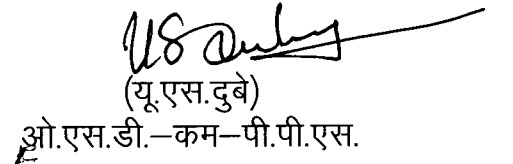 US Dubey
(यू.एस.दुबे)
ओ.एस.डी.–कम–पी.पी.एस.